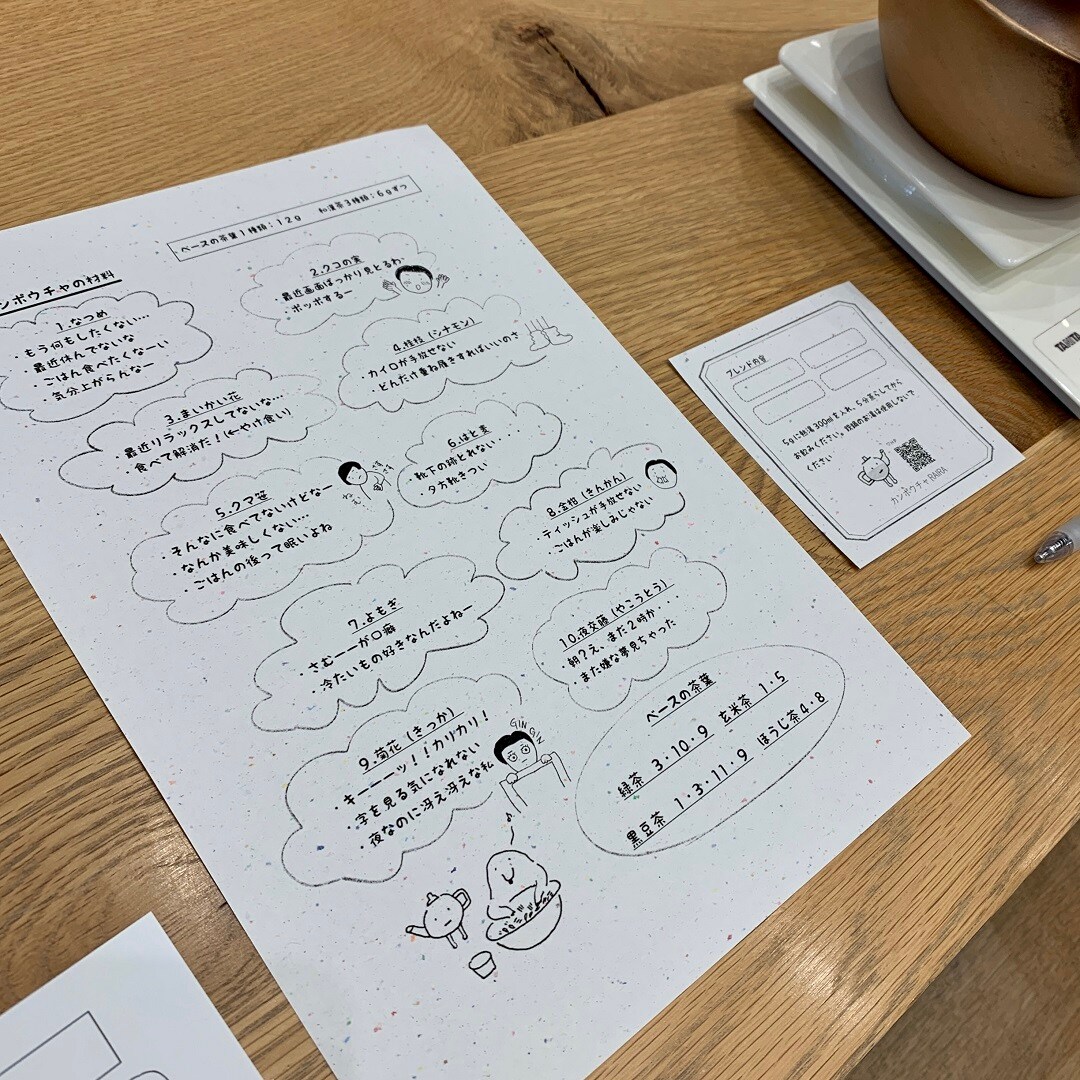 ベースの茶葉1種類：12g　和漢茶3種類：6gずつ
ンポウチャの材料
1.なつめ
・もう何もしたくない…
・最近休んでないな
・ごはん食べたくなーい
気分上がらんなー
2.クコの実
・最近画面ばっかり見とるわ
・ポッポするー
3.まいかい花
最近リラックスしてないな…
食べて解消だ！(←やけ食い)
4.桂枝（シナモン）
・カイロが手放せない
・どんだけ重ね履きすればいいのさ
5.クマ笹
・そんなに食べてないけどなー
・なんか美味しくない…
・ごはんの後って眠いよね
6.はと麦
・靴下の跡とれない・・・・
・夕方靴きつい
7.よもぎ
さむーーが口癖
・冷たいもの好きなんだよねー
8.金柑（きんかん）
ティッシュが手放せない
・ごはんが楽しみじゃない
9.菊花（きっか）
・キーーーッ！！カリカリ！
・字を見る気になれない
・夜なのに冴え冴えな私
GINGIN
10.夜交藤（やこうとう）
・朝？え、まだ2時か・・・
また嫌な夢見ちゃった
ベースの茶葉
緑茶　3・10・9　玄米茶　1・5
黒豆茶　1・3・11・9　ほうじ茶4・8
ブレンド内容
5gに熱湯300mlを入れ、5分蒸らしてから
お飲みください。
ください
カンポウチャ
TANITA